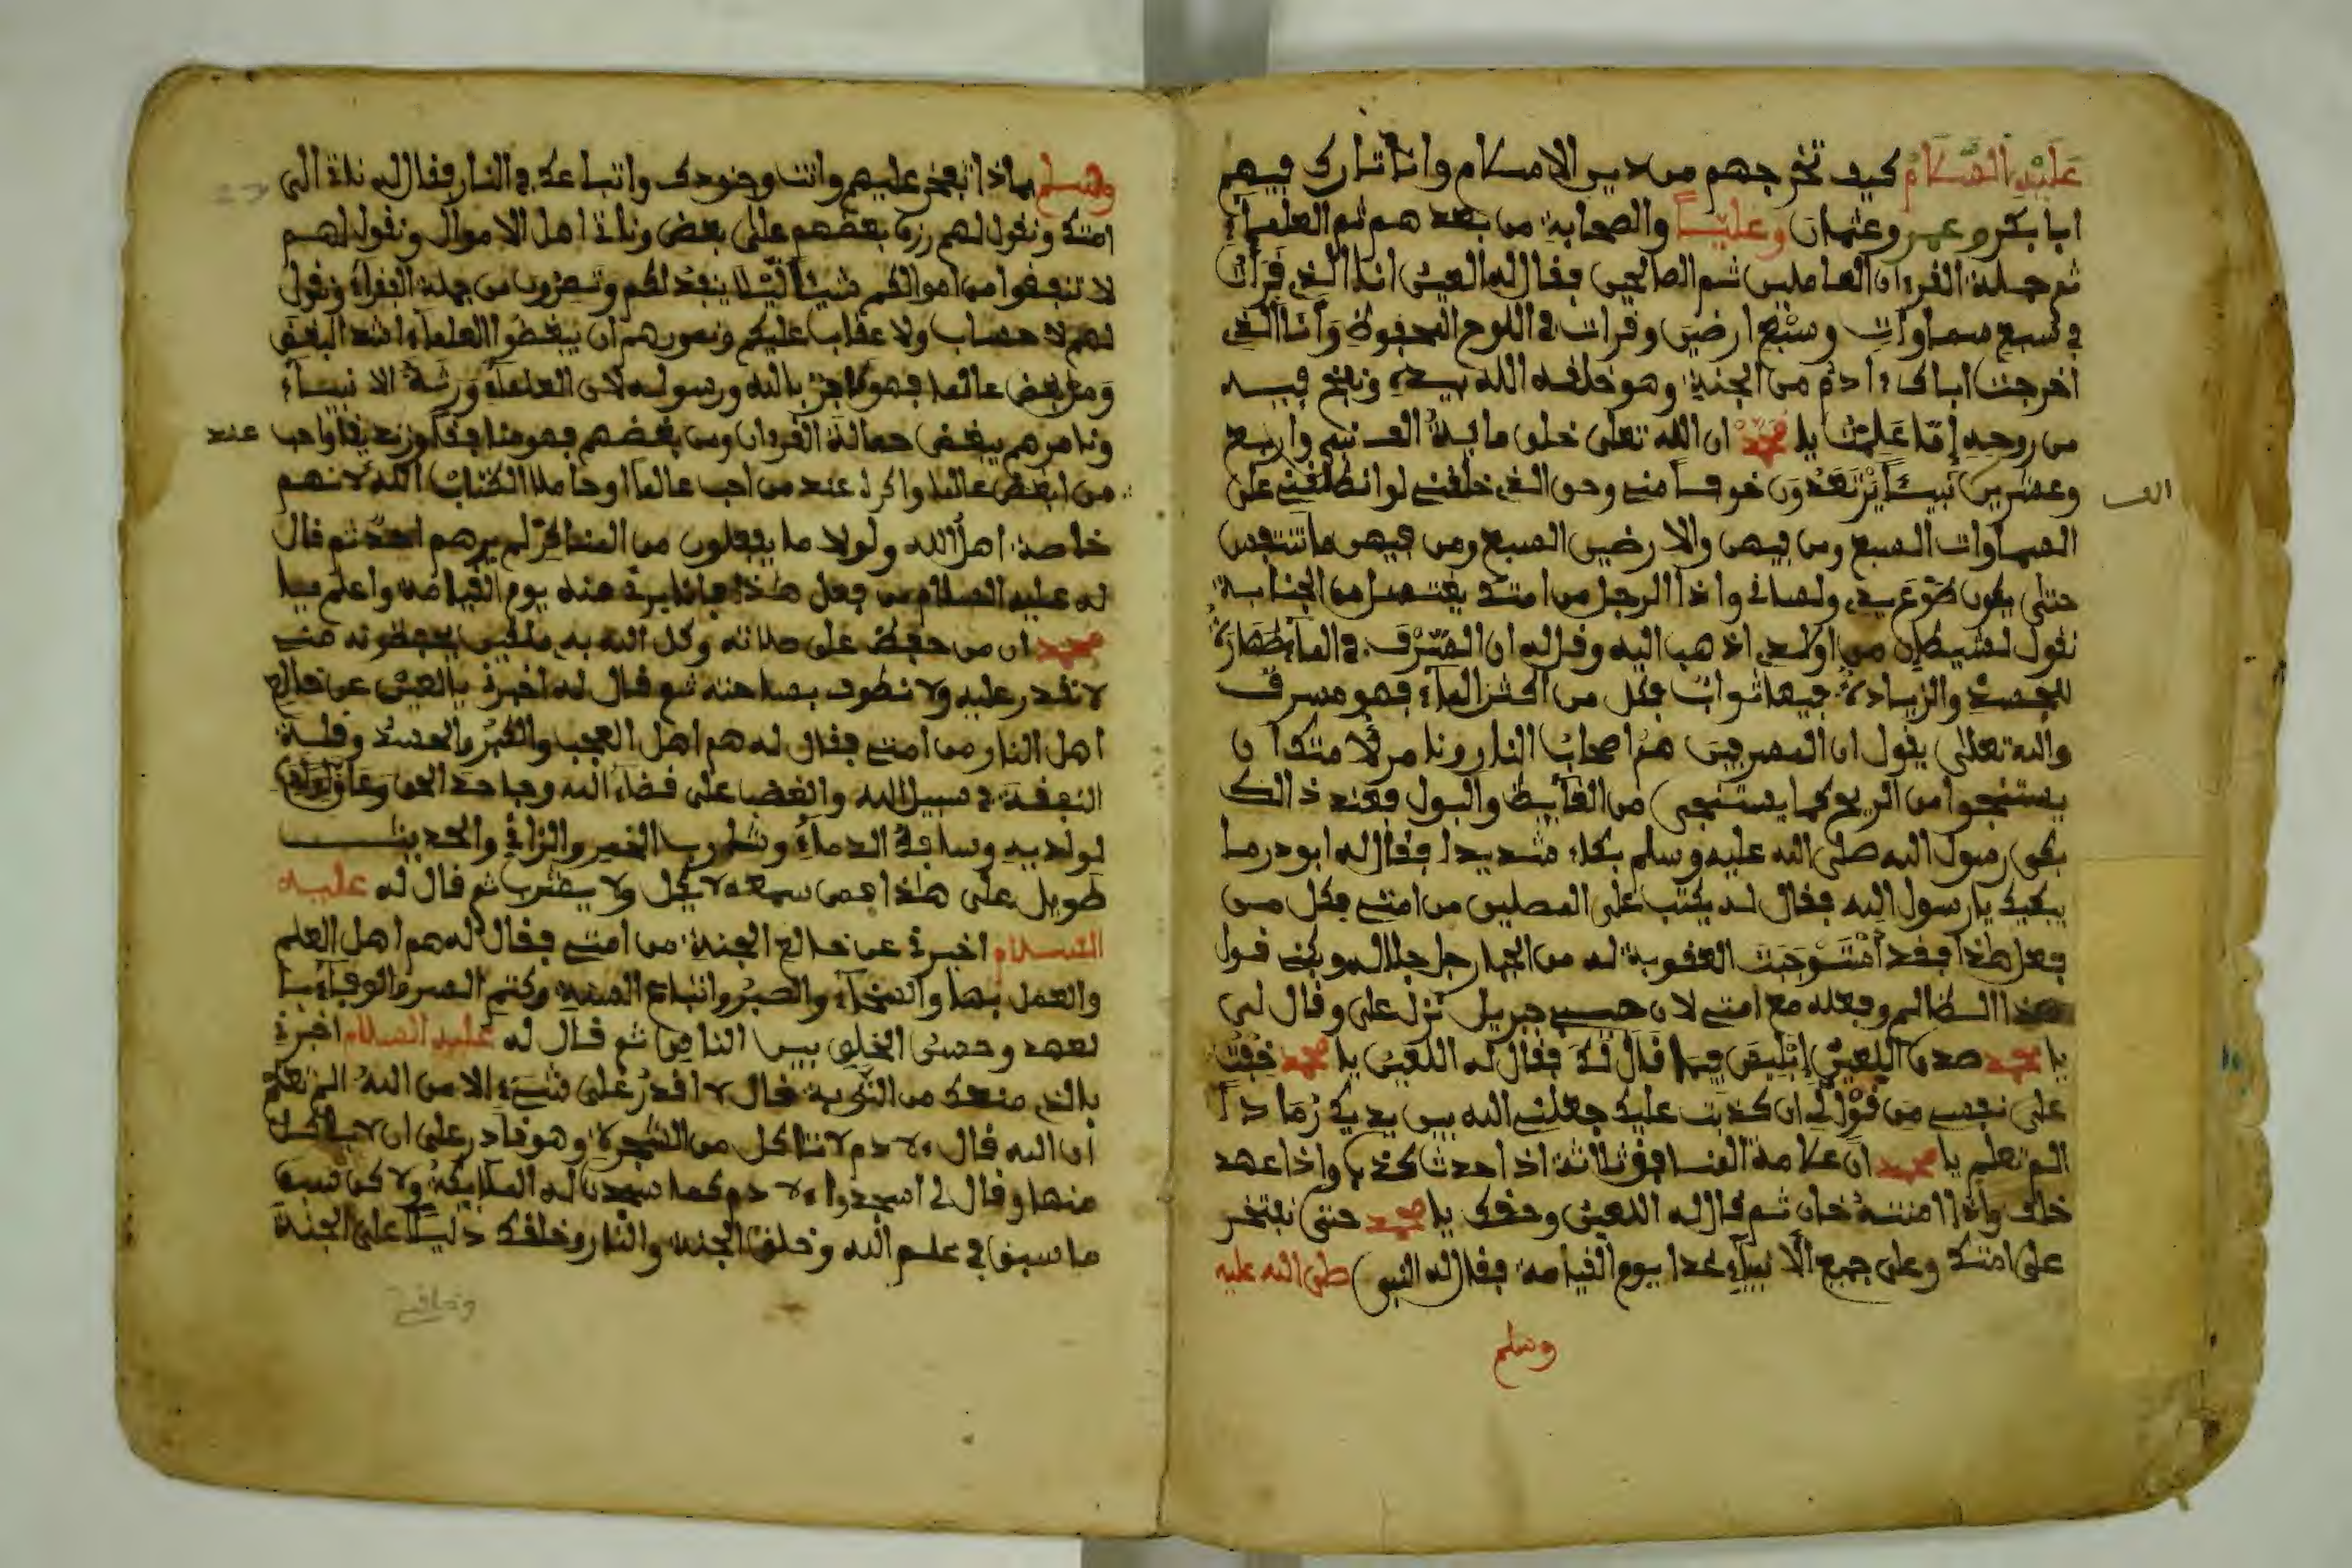 عَلَيْهِ السَّلَامُ كيف تخرجهم من دين الاسلام وانا تارك فيهم
ابا بكر وعمر وعثمان وعليا والصحابة من بعدهم ثم العلماء
ثم حملة القرءان العاملين ثم الصالحين فقال له العين انا الذي قرات
في سبع سماوات وسبع ارضين وقرات في اللوح المحفوظ وانا الذي
اخرجت اباك ءادم من الجنة وهو خلقه الله بيده ونفخ فيه
من روحه اما علمت يا محمد ان الله تعلى خلق ماية الف نبي واربع
وعشرين نبيئا يرتعدون خوفا مني وحق الذي خلقني لو انطلقني على
الف
السماوات السبع ومن فيهن والارضين السبع ومن فيهن ما تنتجس
حتى يكون طوع يدي ولساني واذا الرجل من امتك يغتسل من الجنابة
نقول لشيطان من اولادي اذهب اليه وقل له ان السرف في الماء طهارة
للجسد والزيادة فيها ثواب فكل من اكثر الماء فهو مسرف
والله تعلى يقول ان المسرفين هم اصحاب النار ونامر لامتك ان
يستنجوا من الريح كما يستنجى من الغايط والبول فعند ذالك
بكى رسول الله صلى الله عليه وسلم بكاء شديدا فقال له ابو در ما
يبكيك يا رسول الله فقال له يكتب على المصلين من امتي فكل من
فعل هذا فقد استوجبت العقوبة له من الجبار جل جلاله ويكفى قول
هذا الظالم وفعله مع امتي لان حبيبي جبريل نزل علي وقال لي
يا محمد صدق اللعين إبليس فيما قال لك فقال له اللعين يا محمد خفت
على نفسي من قولي ان كذبت عليك جعلني الله بين يديك رمادا
الم تعلم يا محمد ان علامة المنافق ثلاثة اذا حدث كذب واذا عهد
خلف واذا امنته خان ثم قال له اللعين وحقك يا محمد حتى نفتخر
على امتك وعلى جميع الانبياء غدا يوم القيامة فقال له النبي صلى الله عليه
وسلم
وسلم بماذا تفخر عليهم وانت وجنودك واتباعك في النار فقال له ناة الى
امتك ونقول لهم رزق بعضهم على بعض وناة اهل الاموال ونقول لهم
لا تنفقوا من اموالكم شيئا ليلا ينفد لكم وتصيرون من جملة الفقراء ونقول
لهم لا حساب ولا عقاب عليكم ونامرهم ان يبغضوا العلماء اشد البغض
ومن بغض عالما فهو كافر بالله ورسوله لان العلماء ورثة الانبياء
ونامرهم ببغض حمالة القرءان ومن بغضهم فهو منافق او زنديق واحب عند
من ابغض عالما واكره عند من احب عالما او حاملا لكتاب الله لانهم
خاصة اهل الله ولولا ما يفعلون من المناكر لم يرهم احد ثم قال
له عليه السلام من فعل هذا فانا بريء منه يوم القيامة واعلم يا
محمد ان من حفظ على صلاته وكل الله به ملكين يحفظونه مني
لا نقدر عليه ولا نطوف بساحته ثم قال له اخبرني يا لعين عن خالع
اهل النار من امتي فقال له هم اهل العجب والكبر والحسد وقلة
النفقة في سبيل الله والغضب على قضاء الله وجاحد الحق وعاق
لوالديه وسافك الدماء وشارب الخمر والزاني والحديث
طويل على هذا فمن سمعه لا ياكل ولا يشرب ثم قال له عليه
السلام اخبرني عن خالع الجنة من امتي فقال له هم اهل العلم
والعمل بها والسخاء والصبر واتباع السنة وكتم السر والوفاء بـا
لعهد وحسن الخلق بين الناس ثم قال له عليه السلام اخبرني
بالذي منعك من التوبة قال لا اقدر على شيء الا من الله الم تعلم
ان الله قال لادم لا تاكل من الشجرة وهو قادر على ان لا ياكل
منها وقال لي اسجدوا لادم كما سجدت له الملايكة ولاكن سبق
ما سبق في علم الله وخلق الجنة والنار وخلقك دليلا على الجنة
وخلقني